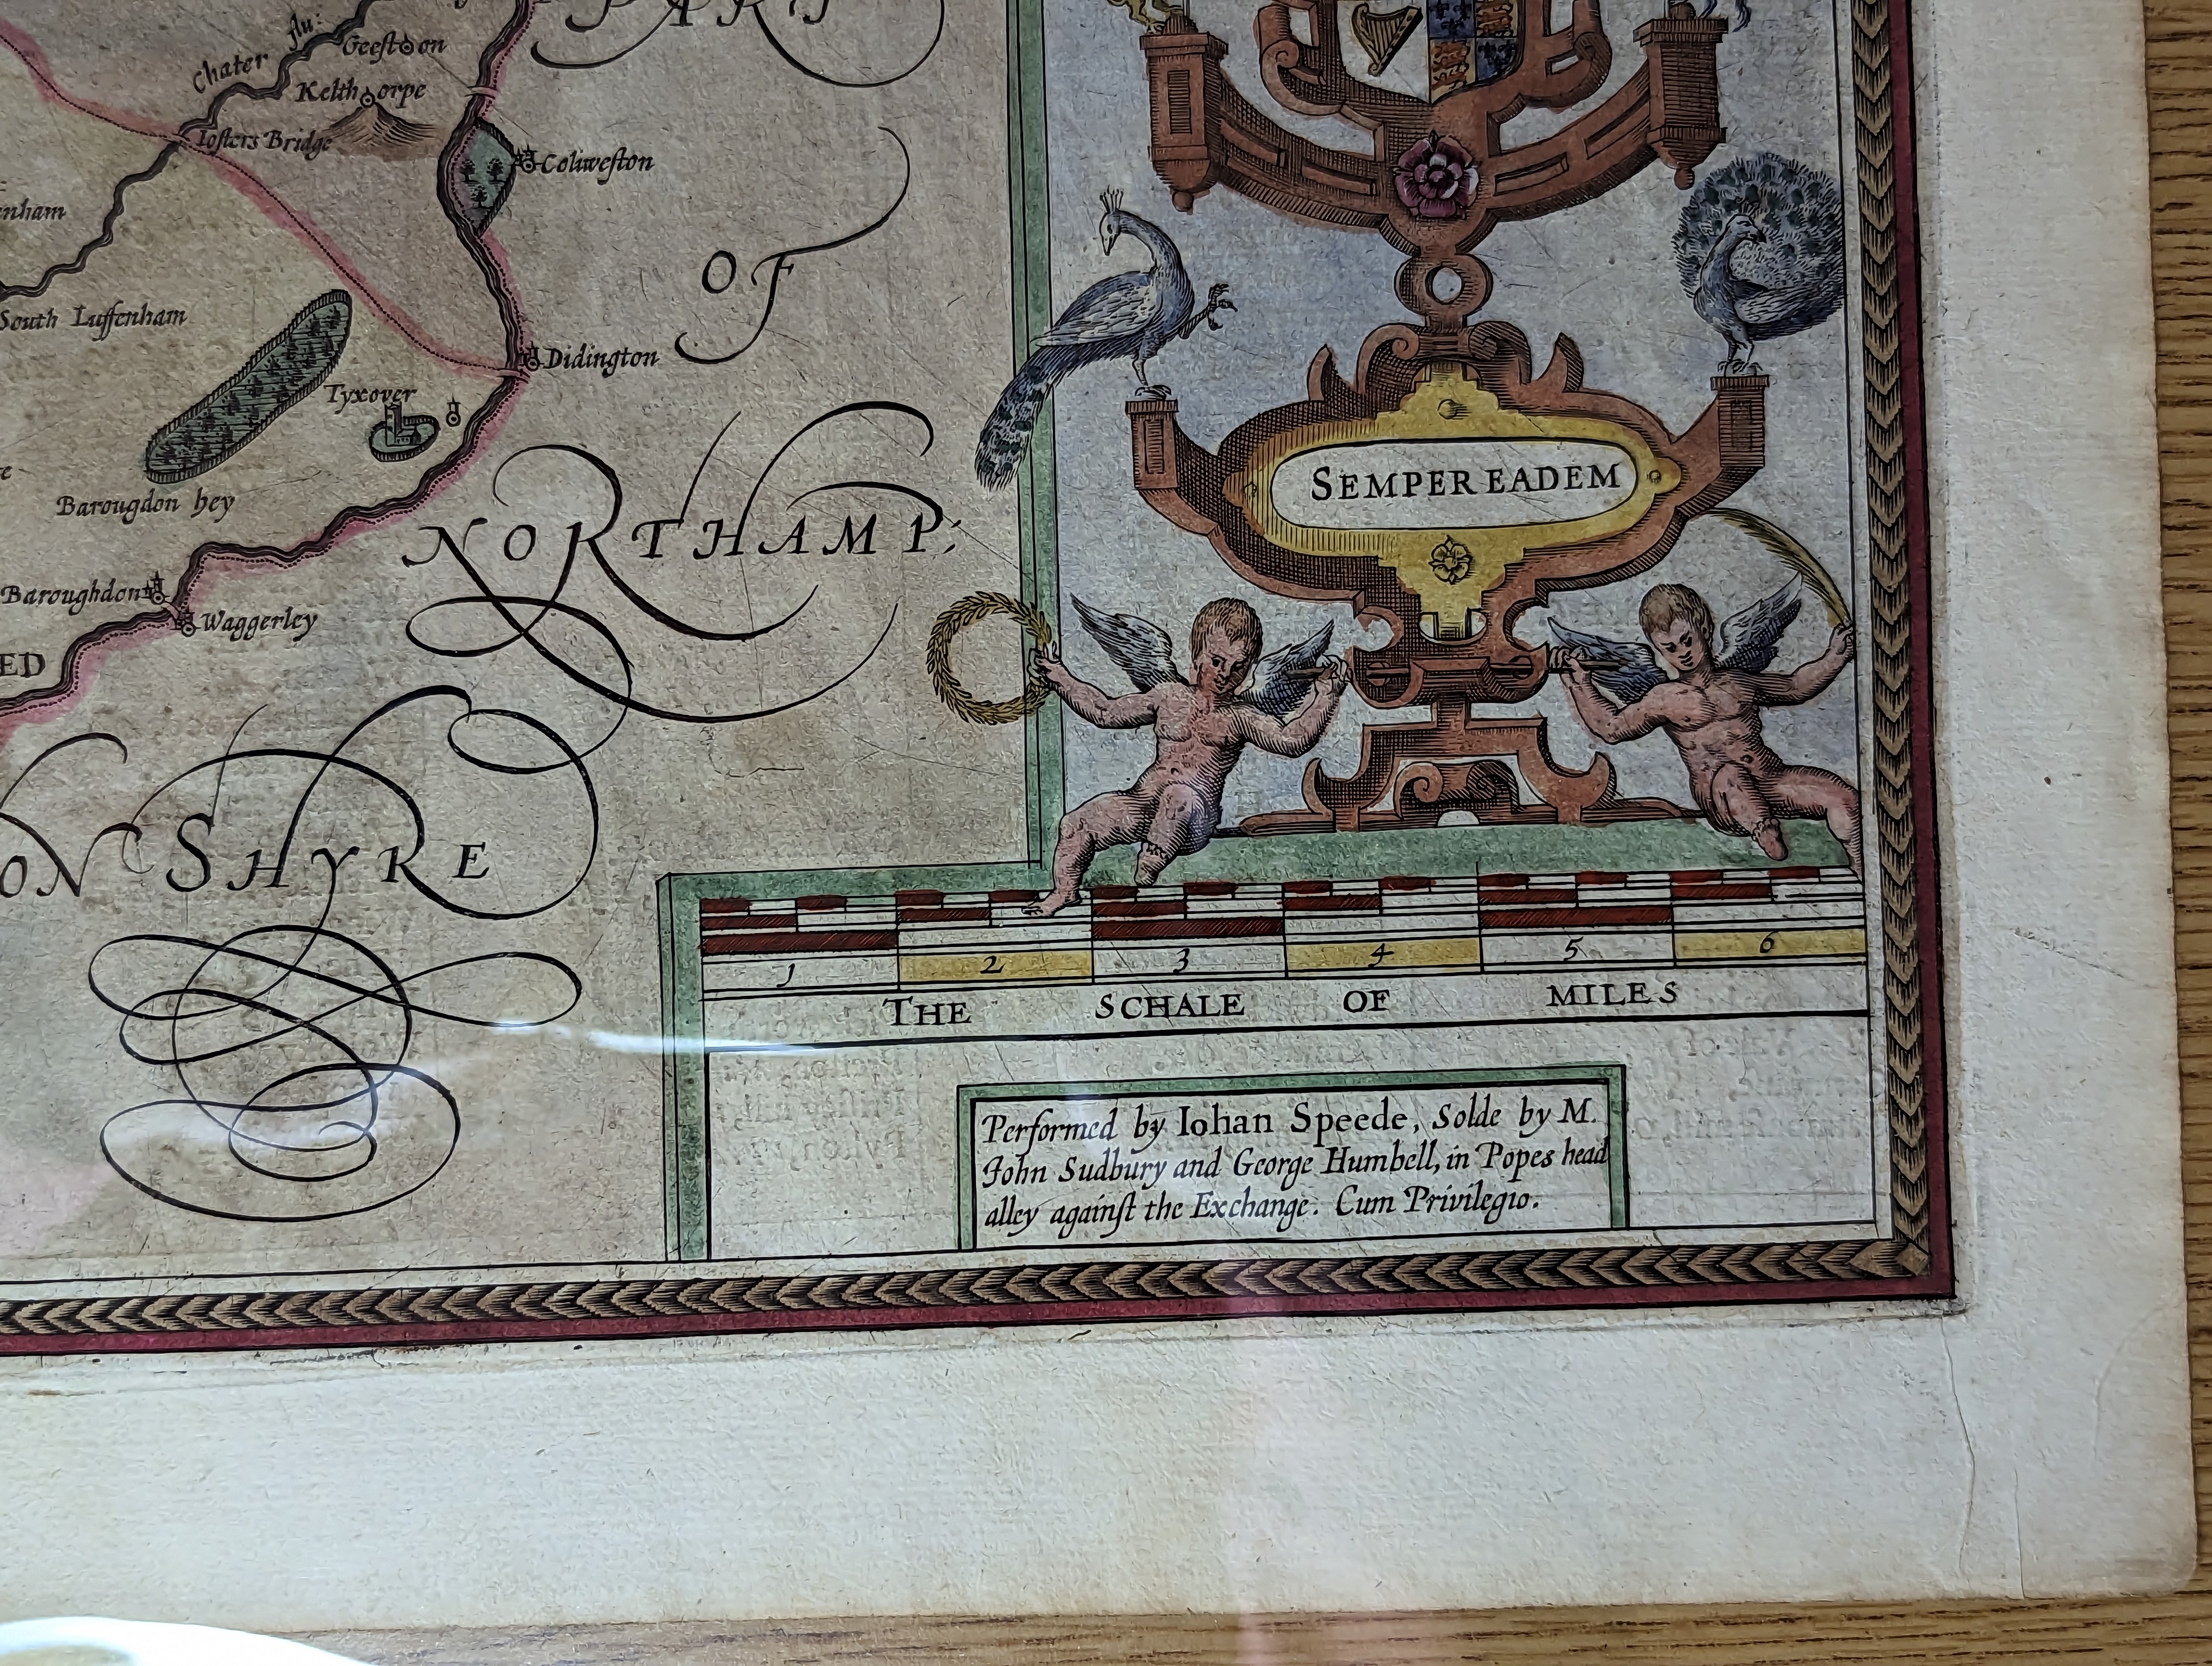 PART
Chater flu:
Geeston
Kelthorpe
Iosters Bridge
Coliweston
enham
OF
South Luffenham
Didington
Tyxover
Barougdon hey
SEMPER EADEM
NORTHAMP:
Baroughdon
Waggerley
ED
ON SHYRE
1 2 3 4 5 6
THE SCHALE OF MILES
Performed by Iohan Speede, Solde by M.
John Sudbury and George Humbell, in Popes head
alley againſt the Exchange. Cum Privilegio.